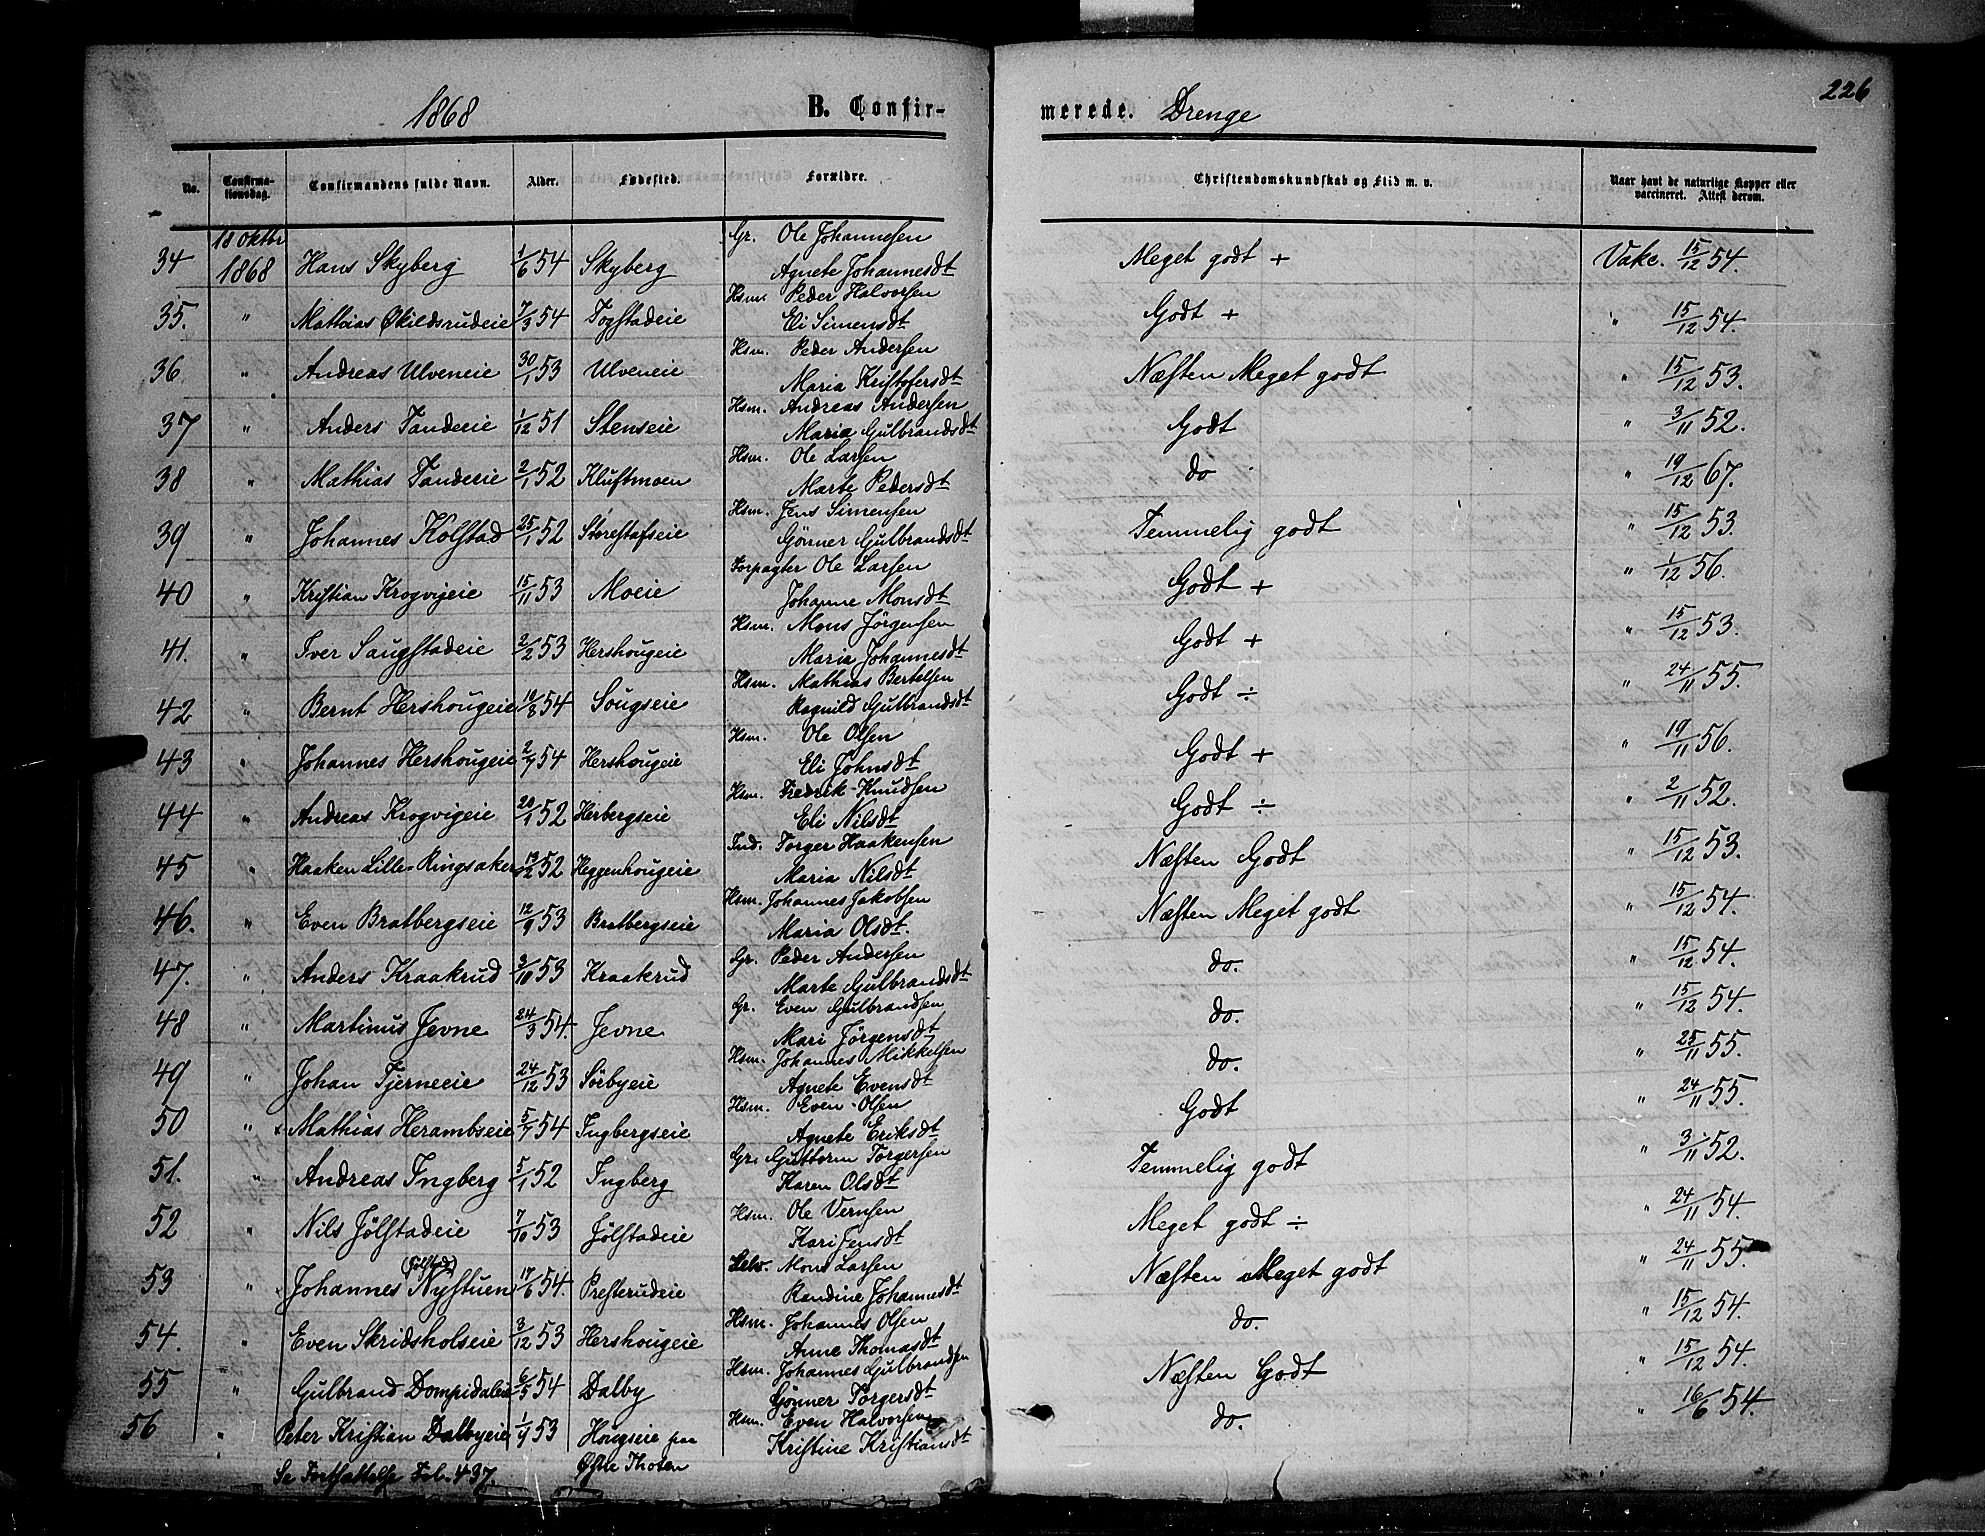 226
1868 B. Confir- merede. Drenge
No. Confirma-tionsdag. Confirmandens fulde Navn. Alder. Fødested. Forældre. Christendomskundskab og Flid m. v. Naar havt de naturlige Kopper eller vaccineret. Attest derom.
34 18 Oktbr 1868 Hans Skyberg 1/6 54 Skyberg Gr. Ole Johannesen Agnete Johannesdt Meget godt + Vakc. 15/12 54.
35. " Mathias Økildsrudeie 7/3 54 Togstadeie Hsm. Peder Halvorsen Eli Simensdt Godt + " 15/12 54.
36 " Andreas Ulveneie 30/1 53 Ulveneie Hsm. Peder Andersen Maria Kristofersdt Næsten Meget godt " 15/12 53.
37 " Anders Tandeeie 1/12 51 Stenseie Hsm. Andreas Andersen Maria Gulbrandsdt Godt " 3/11 52.
38 " Mathias Tandeeie 2/1 52 Kluftmoen Hsm. Ole Larsen Marte Pedersdt do " 19/12 67.
39 " Johannes Kolstad 25/1 52 Storestafseie Hsm. Jens Simensen Gönner Gulbrandsdt Temmelig godt " 15/12 53.
40 " Kristian Krogvigeie 15/11 53 Moeie Forpagter Ole Larsen Johanne Monsdt Godt + " 1/12 56.
41. " Iver Saugstadeie 2/2 53 Hershougeie Hsm. Mons Jörgensen Maria Johannesdt Godt + " 15/12 53.
42 " Bernt Hershougeie 54 Sougseie Hsm. Mathias Bertelsen Ragnild Gulbrandsdt Godt ÷ " 24/11 55.
43 " Johannes Hershougeie 54 Hershougeie Hsm. Ole Olsen Eli Johnsdt Godt + " 19/11 56.
44 " Andreas Krogvigeie 20/1 52 Herbergseie Hsm. Fredrik Knudsen Eli Nilsdt Godt ÷ " 2/11 52.
45 " Haaken Lille-Ringsaker 52 Heggenhougeie Ind. Torger Haakensen Maria Nilsdt Næsten Godt " 15/12 53.
46. " Even Bratbergseie 12/9 53 Bratbergseie Hsm. Johannes Jakobsen Maria Olsdt. Næsten Meget godt " 15/12 54.
47. " Anders Kraakrud 3/10 53 Kraakrud Gr. Peder Andersen Marte Gulbrandsdt do. " 15/12 54.
48 " Martinus Jevne 24/3 54. Jevne Gr. Even Gulbrandsen Mari Jörgensdt do. " 15/12 54.
49 " Johan Tjerneeie 24/12 53 Sörbyeie Hsm. Johannes Mikkelsen Agnete Evensdt do. " 25/11 55.
50 " Mathias Herambseie 5/7 54 Ingbergseie Hsm. Even Olsen Agnete Eriksdt Godt " 24/11 55.
51. " Andreas Ingberg 5/1 52 Ingberg Gr. Guttorm Torgersen Karen Olsdt Temmelig godt " 3/11 52.
52 " Nils Jölstadeie 7/10 53 Jölstadeie Hsm. Ole Vernsen Kari Jensdt Meget godt ÷ " 24/11 54.
53 " Johannes (Jölstad) Nystuen 17/6 54. Presterudeie Selv. Mons Larsen Randine Johannesdt Næsten Meget godt " 24/11 55.
54. " Even Skridsholseie 3/12 53 Hershougeie Hsm. Johannes Olsen Anne Thomasdt do. " 15/12 54.
55 " Gulbrand Dompidaleie 6/5 54 Dalby Hsm. Johannes Gulbrandsen Gönner Torgersdt Næsten Godt " 15/12 54.
56 " Peter Kristian Dalbyeie 53 Hougseie paa Østre Thoten Hsm. Even Halvorsen Kristine Kristiansdt do. " 16/6 54.
Se Fortsættelse Fol. 437.